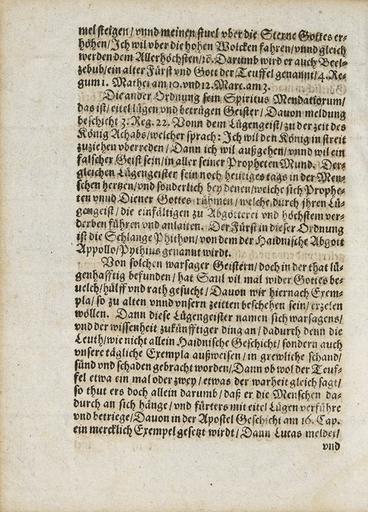 mel steigen / vnnd meinen stuel vber die Sterne Gottes er-
höhen / Ich wil vber die hohen Wolcken fahren / vnnd gleich
werden dem Allerhöchsten / ꝛc. Darumb wird er auch Beel-
zebub / ein alter Fürst vnd Gott der Teuffel genannt / 4. Re-
gum 1. Mathei am 10. vnd 12. Marc. am 3.
Die ander Ordnung sein Spiritus Mendatiorum /
das ist / eitel lügen vnd betrügen Geister / Dauon meldung
beschicht 3. Reg. 22. Vonn dem Lügengeist / zu der zeit des
König Achabs / welcher sprach: Ich wil den König in streit
zuziehen vberreden / Dann ich wil außgehen / vnnd wil ein
falscher Geist sein / in aller seiner Propheten Mund. Der-
gleichen Lügengeister sein noch heutiges tags in der Men-
schen hertzen / vnd sonderlich bey denen / welche sich Prophe-
ten vnnd Diener Gottes rühmen / welche durch jhren Lü-
gengeist / die einfältigen zu Abgötterei vnd höchstem ver-
derben führen vnd anlaiten. Der Fürst in dieser Ordnung
ist die Schlange Phithon / von dem der Haidnische Abgott
Appollo / Pythius genannt wirdt.
Von solchen warsager Geistern / doch in der that lü-
genhafftig befunden / hat Saul vil mal wider Gottes be-
uelch / hülff vnd rath gesucht / Dauon wir hiernach Exem-
pla / so zu alten vnnd vnsern zeitten beschehen sein / erzelen
wöllen. Dann diese Lügengeister namen sich warsagens /
vnd der wissenheit zukünfftiger ding an / dadurch denn die
Leuth / wie nicht allein Haidnische Geschicht / sondern auch
vnsere tägliche Exempla außweisen / in grewliche schand /
sünd vnd schaden gebracht worden / Dann ob wol der Teuf-
fel etwa ein mal oder zwey / etwas der warheit gleich sagt /
so thut ers doch allein darumb / daß er die Menschen da-
durch an sich hänge / vnd fürters mit eitel Lügen verführe
vnd betriege / Dauon in der Apostel Geschicht am 16. Cap.
ein mercklich Exempel gesetzt wirdt / Dann Lucas meldet /
vnd